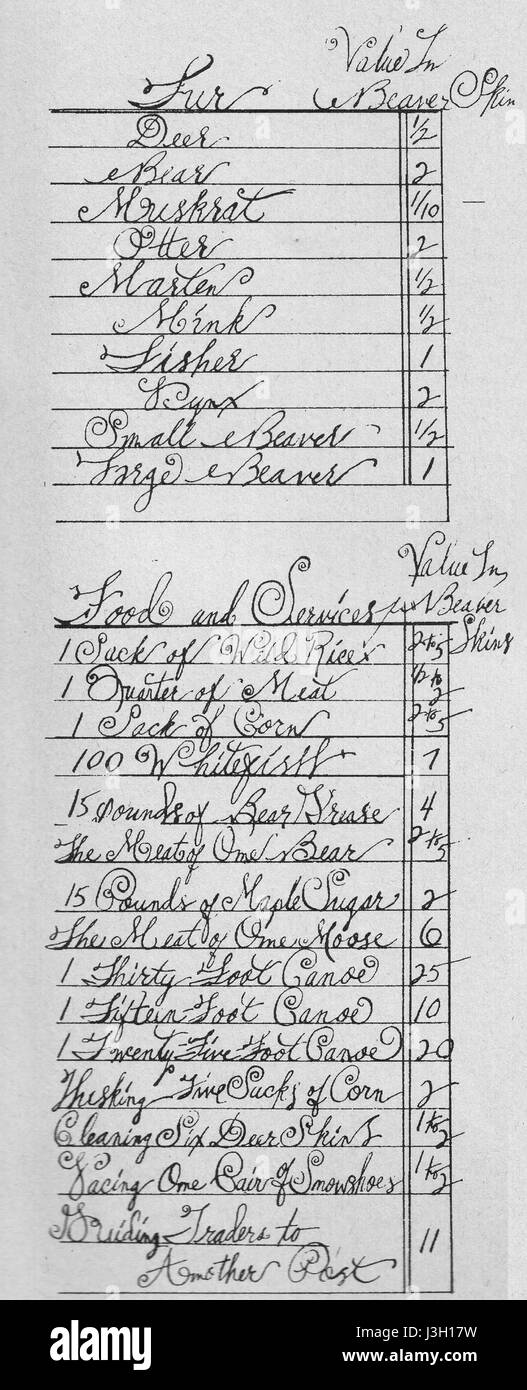 Value In
Fur Beaver Skin
Deer 1/2
Bear 2
Muskrat 1/10
Otter 2
Marten 1/2
Mink 1/2
Fisher 1
Lynx 2
Small Beaver 1/2
Large Beaver 1
Value In
Food and Services Beaver
Skins
1 Sack of Wild Rice 2 to 5
1 Quarter of Meat 1/2 to 2
1 Sack of Corn 2 to 5
100 Whitefish 7
15 Pounds of Bear Grease 4
The Meat of One Bear 2 to 5
15 Pounds of Maple Sugar 2
The Meat of One Moose 6
1 Thirty Foot Canoe 25
1 Fifteen Foot Canoe 10
1 Twenty Five Foot Canoe 20
Husking Five Sacks of Corn 2
Cleaning Six Deer Skins 1 to 2
Lacing One Pair of Snowshoes 1 to 2
Guiding Traders to
Another Post 11
alamy
alamy
Image ID: J3H17W
www.alamy.com